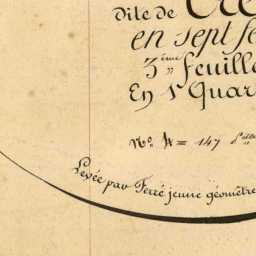 dite de Cre
en sept fe
3ème feuille
En 1 Quar
No. 4 = 147
Levée par Ferré jeune géomètre